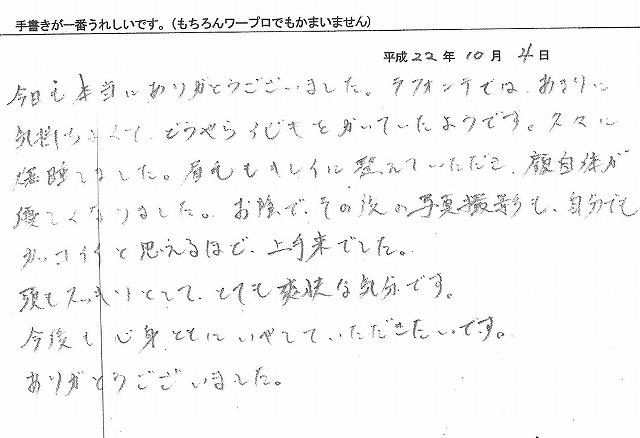 手書きが一番うれしいです。(もちろんワープロでもかまいません)
平成 22 年 10 月 4 日
今日も本当にありがとうございました。ラフォンテでは、あまりに
気持ちよくて、どうやらイビキをかいていたようです。久々に
爆睡しました。眉毛もキレイに整えていただき、顔自体が
優しくなりました。お陰で、その後の写真撮影も、自分でも
カッコイイと思えるほど、上出来でした。
頭もスッキリとして、とても爽快な気分です。
今後も心身ともにいやしていただきたいです。
ありがとうございました。